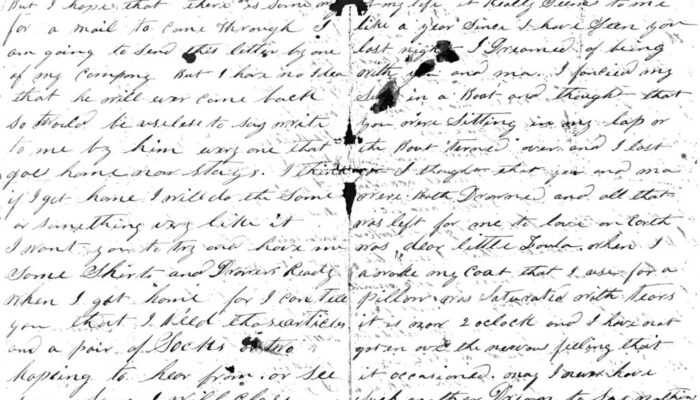 But I hope that there is some
for a mail to come through I
am going to send this letter by one
of my Company But I have no idea
that he will ever come back
so would be useless to say write
to me by him every one that
goes home now stays. I think
if I get home I will do the same
or something very like it
I want you to try and have me
Some Shirts and Drawers Ready
when I get home for I can tell
you that I Need these articles
and a pair of Socks or two
hopeing to hear from or see
of my life it Really Seems to me
like a year Since I have Seen you
last night I Dreamed of being
with you and ma. I fancied my
Self in a Boat and thought that
you were Sitting in my lap or
the Boat turned over and I lost
I thought that you and ma
were Both Drowned and all that
was left for me to love on Earth
was dear little Loula. when I
awoke my Coat that I use for a
pillow was Saturated with tears
it is now 2 oclock and I have not
got over the nervous feeling that
it occasioned. may I never have
such another Dream to Say nothing